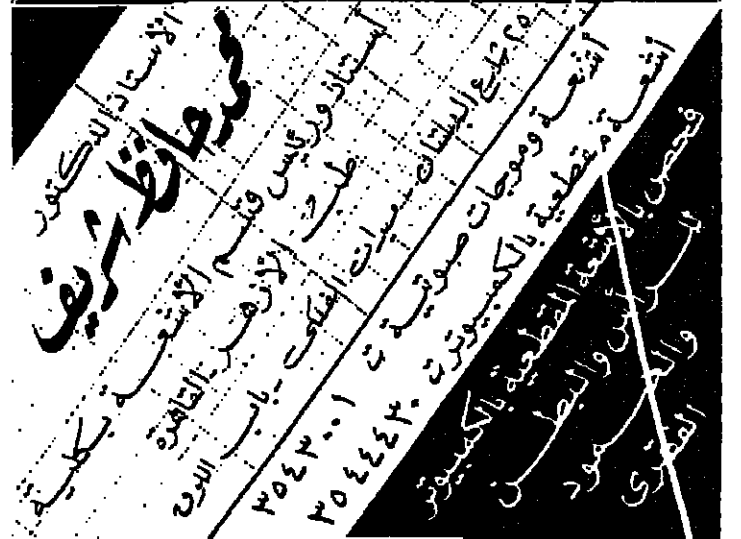 الأستاذ الدكتور
محمد حافظ شريف
أستاذ ورئيس قسم الأشعة بكلية
طب الأزهر - القاهرة
٢٥ شارع البستان - ميدان الفلكى - باب اللوق
أشعة وموجات صوتية ت ٣٥٤٣٠٠١
أشعة مقطعية بالكمبيوتر ت ٣٥٤٤٤٣٠
فحص بالأشعة المقطعية بالكمبيوتر
للرأس والبطن
والعمود
الفقرى